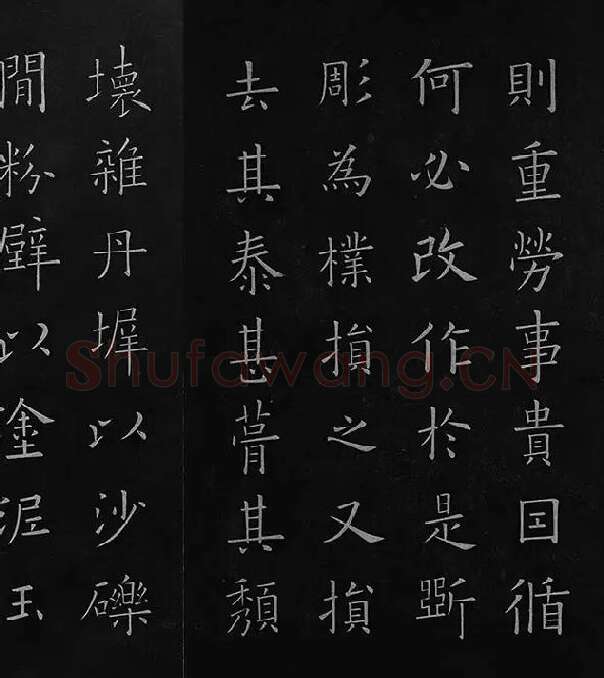 則重勞事貴因循
何必改作於是斲
彫為樸損之又損
去其泰甚葺其頹
壞雜丹墀以沙礫
間粉壁以塗泥玉
Shufawang.CN